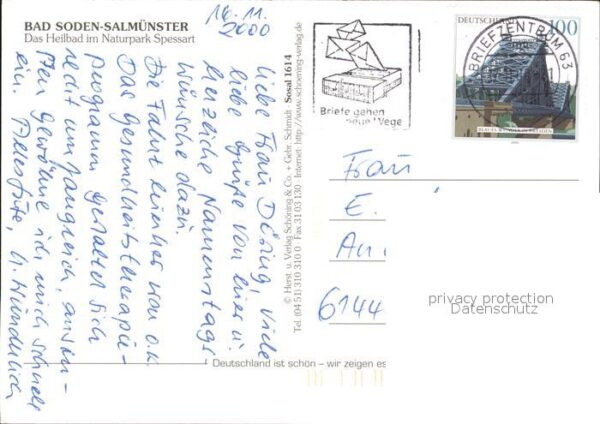 BAD SODEN-SALMÜNSTER
Das Heilbad im Naturpark Spessart
16.11.
2000
Liebe Frau Döring, viele
liebe Grüße von hier u.
herzliche Namenstags
Wünsche dazu.
Die Fahrt hierher war o.k.
Das Gesundheitstherapie-
programm gestaltet sich
recht umfangreich, anson-
sten gewöhne ich mich schnell
ein. Alles Gute,
© Herst. u. Verlag Schöning & Co. + Gebr. Schmidt · Sosal 1614
Tel. (04 51) 310 310 0 · Fax 31 03 130 · Internet: http://www.schoening-verlag.de
Briefe gehen
neue Wege
DEUTSCHLAND
100
BRIEFZENTRUM 63
BLAUES WUNDER IN DRESDEN
Frau
E.
An
6144
privacy protection
Datenschutz
Deutschland ist schön – wir zeigen es